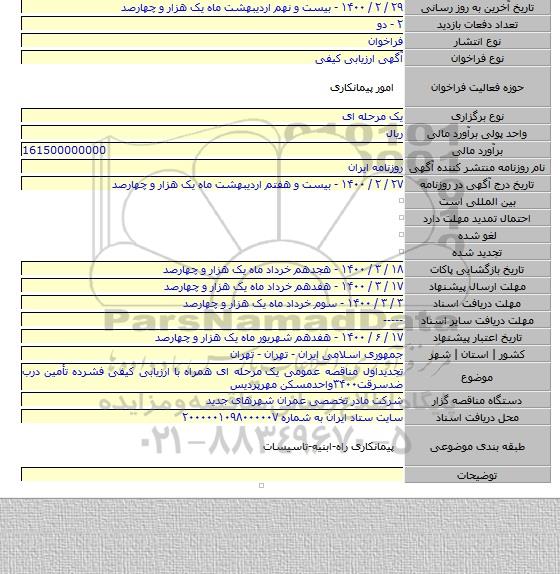 تاریخ آخرین به روز رسانی ۲۹ / ۲ / ۱۴۰۰ - بیست و نهم اردیبهشت ماه یک هزار و چهارصد
تعداد دفعات بازدید ۲ - دو
نوع انتشار فراخوان
نوع فراخوان آگهی ارزیابی کیفی
حوزه فعالیت فراخوان امور پیمانکاری
نوع برگزاری یک مرحله ای
واحد پولی برآورد مالی ریال
برآورد مالی 161500000000
نام روزنامه منتشر کننده آگهی روزنامه ایران
تاریخ درج آگهی در روزنامه ۲۷ / ۲ / ۱۴۰۰ - بیست و هفتم اردیبهشت ماه یک هزار و چهارصد
بین المللی است
احتمال تمدید مهلت دارد
لغو شده
تجدید شده
تاریخ بازگشایی پاکات ۱۸ / ۳ / ۱۴۰۰ - هجدهم خرداد ماه یک هزار و چهارصد
مهلت ارسال پیشنهاد ۱۷ / ۳ / ۱۴۰۰ - هفدهم خرداد ماه یک هزار و چهارصد
مهلت دریافت اسناد ۳ / ۳ / ۱۴۰۰ - سوم خرداد ماه یک هزار و چهارصد
مهلت دریافت سایر اسناد -----
تاریخ اعتبار پیشنهاد ۱۷ / ۶ / ۱۴۰۰ - هفدهم شهریور ماه یک هزار و چهارصد
کشور | استان | شهر جمهوری اسلامی ایران - تهران - تهران
موضوع تجدیداول مناقصه عمومی یک مرحله ای همراه با ارزیابی کیفی فشرده تأمین درب
ضدسرقت۳۴۰۰واحدمسکن مهرپردیس
دستگاه مناقصه گزار شرکت مادر تخصصی عمران شهرهای جدید
محل دریافت اسناد سایت ستاد ایران به شماره ۲۰۰۰۰۰۱۰۹۸۰۰۰۰۰۷
طبقه بندی موضوعی پیمانکاری راه-ابنیه-تاسیسات
توضیحات
ParsNamadData
۰۲۱-۸۸۳۴۹۶۷۰-۵